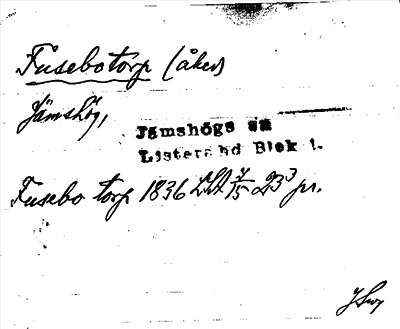 Fusebotorp (åker)
Jämshög,
Jämshögs sn
Listers hd Blek l.
Fusebo torp 1836 LSA 7/15 23³ pr.